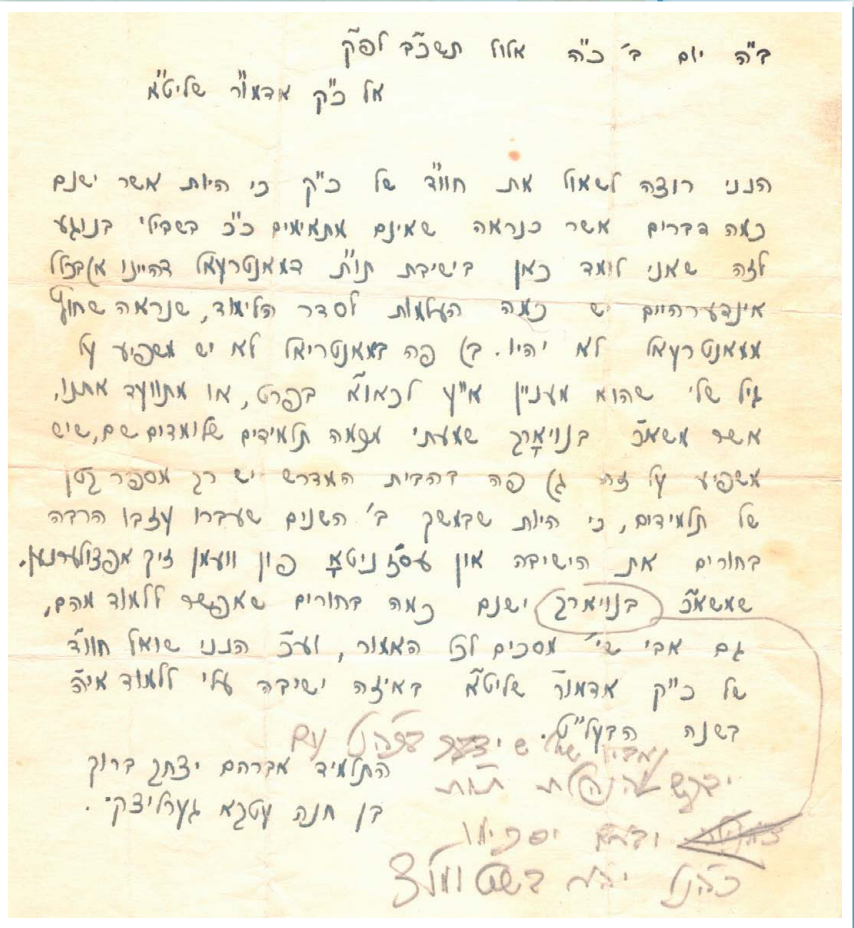 ב"ה יום ב' כ"ה אלול תשכ"ב לפ"ק
אל כ"ק אדמו"ר שליט"א
הנני רוצה לשאול את חוו"ד של כ"ק כי היות אשר ישנם
כמה דברים אשר כנראה שאינם מתאימים כ"כ בשבילי בנוגע
לזה שאני לומד כאן בישיבת תו"ת דמאנטרעאל דהיינו א) בכלל
אינדערהיים יש כמה העלמות לסדר הלימוד, שנראה שחוץ
ממאנטרעאל לא יהיו. ב) פה במאנטריאל לא יש משפיע על
גיל שלי שהוא מעניין א"ץ לכאו"א בפרט, או מתוועד אתנו,
אשר משא"כ בנויארק שמעתי מכמה תלמידים שלומדים שם, שיש
משפיע על זה ג) פה בהבית המדרש יש רק מספר קטן
של תלמידים, כי היות שבמשך ב' השנים שעברו עזבו הרבה
בחורים את הישיבה און עס'ז ניטאָ פון וועמען זיך אפצולערנען.
שמשא"כ בנויארק ישנם כמה בחורים שאפשר ללמוד מהם,
גם אבי שי' מסכים לכל האמור, וע"כ הנני שואל חוו"ד
של כ"ק אדמו"ר שליט"א באיזה ישיבה עלי ללמוד אי"ה
בשנה הבעל"ט.
התלמיד אברהם יצחק ברוך
בן חנה עטקא גערליצקי.
הנהלת תו"ת
יסכימו
כהנ"ל יהא בשטומו"צ